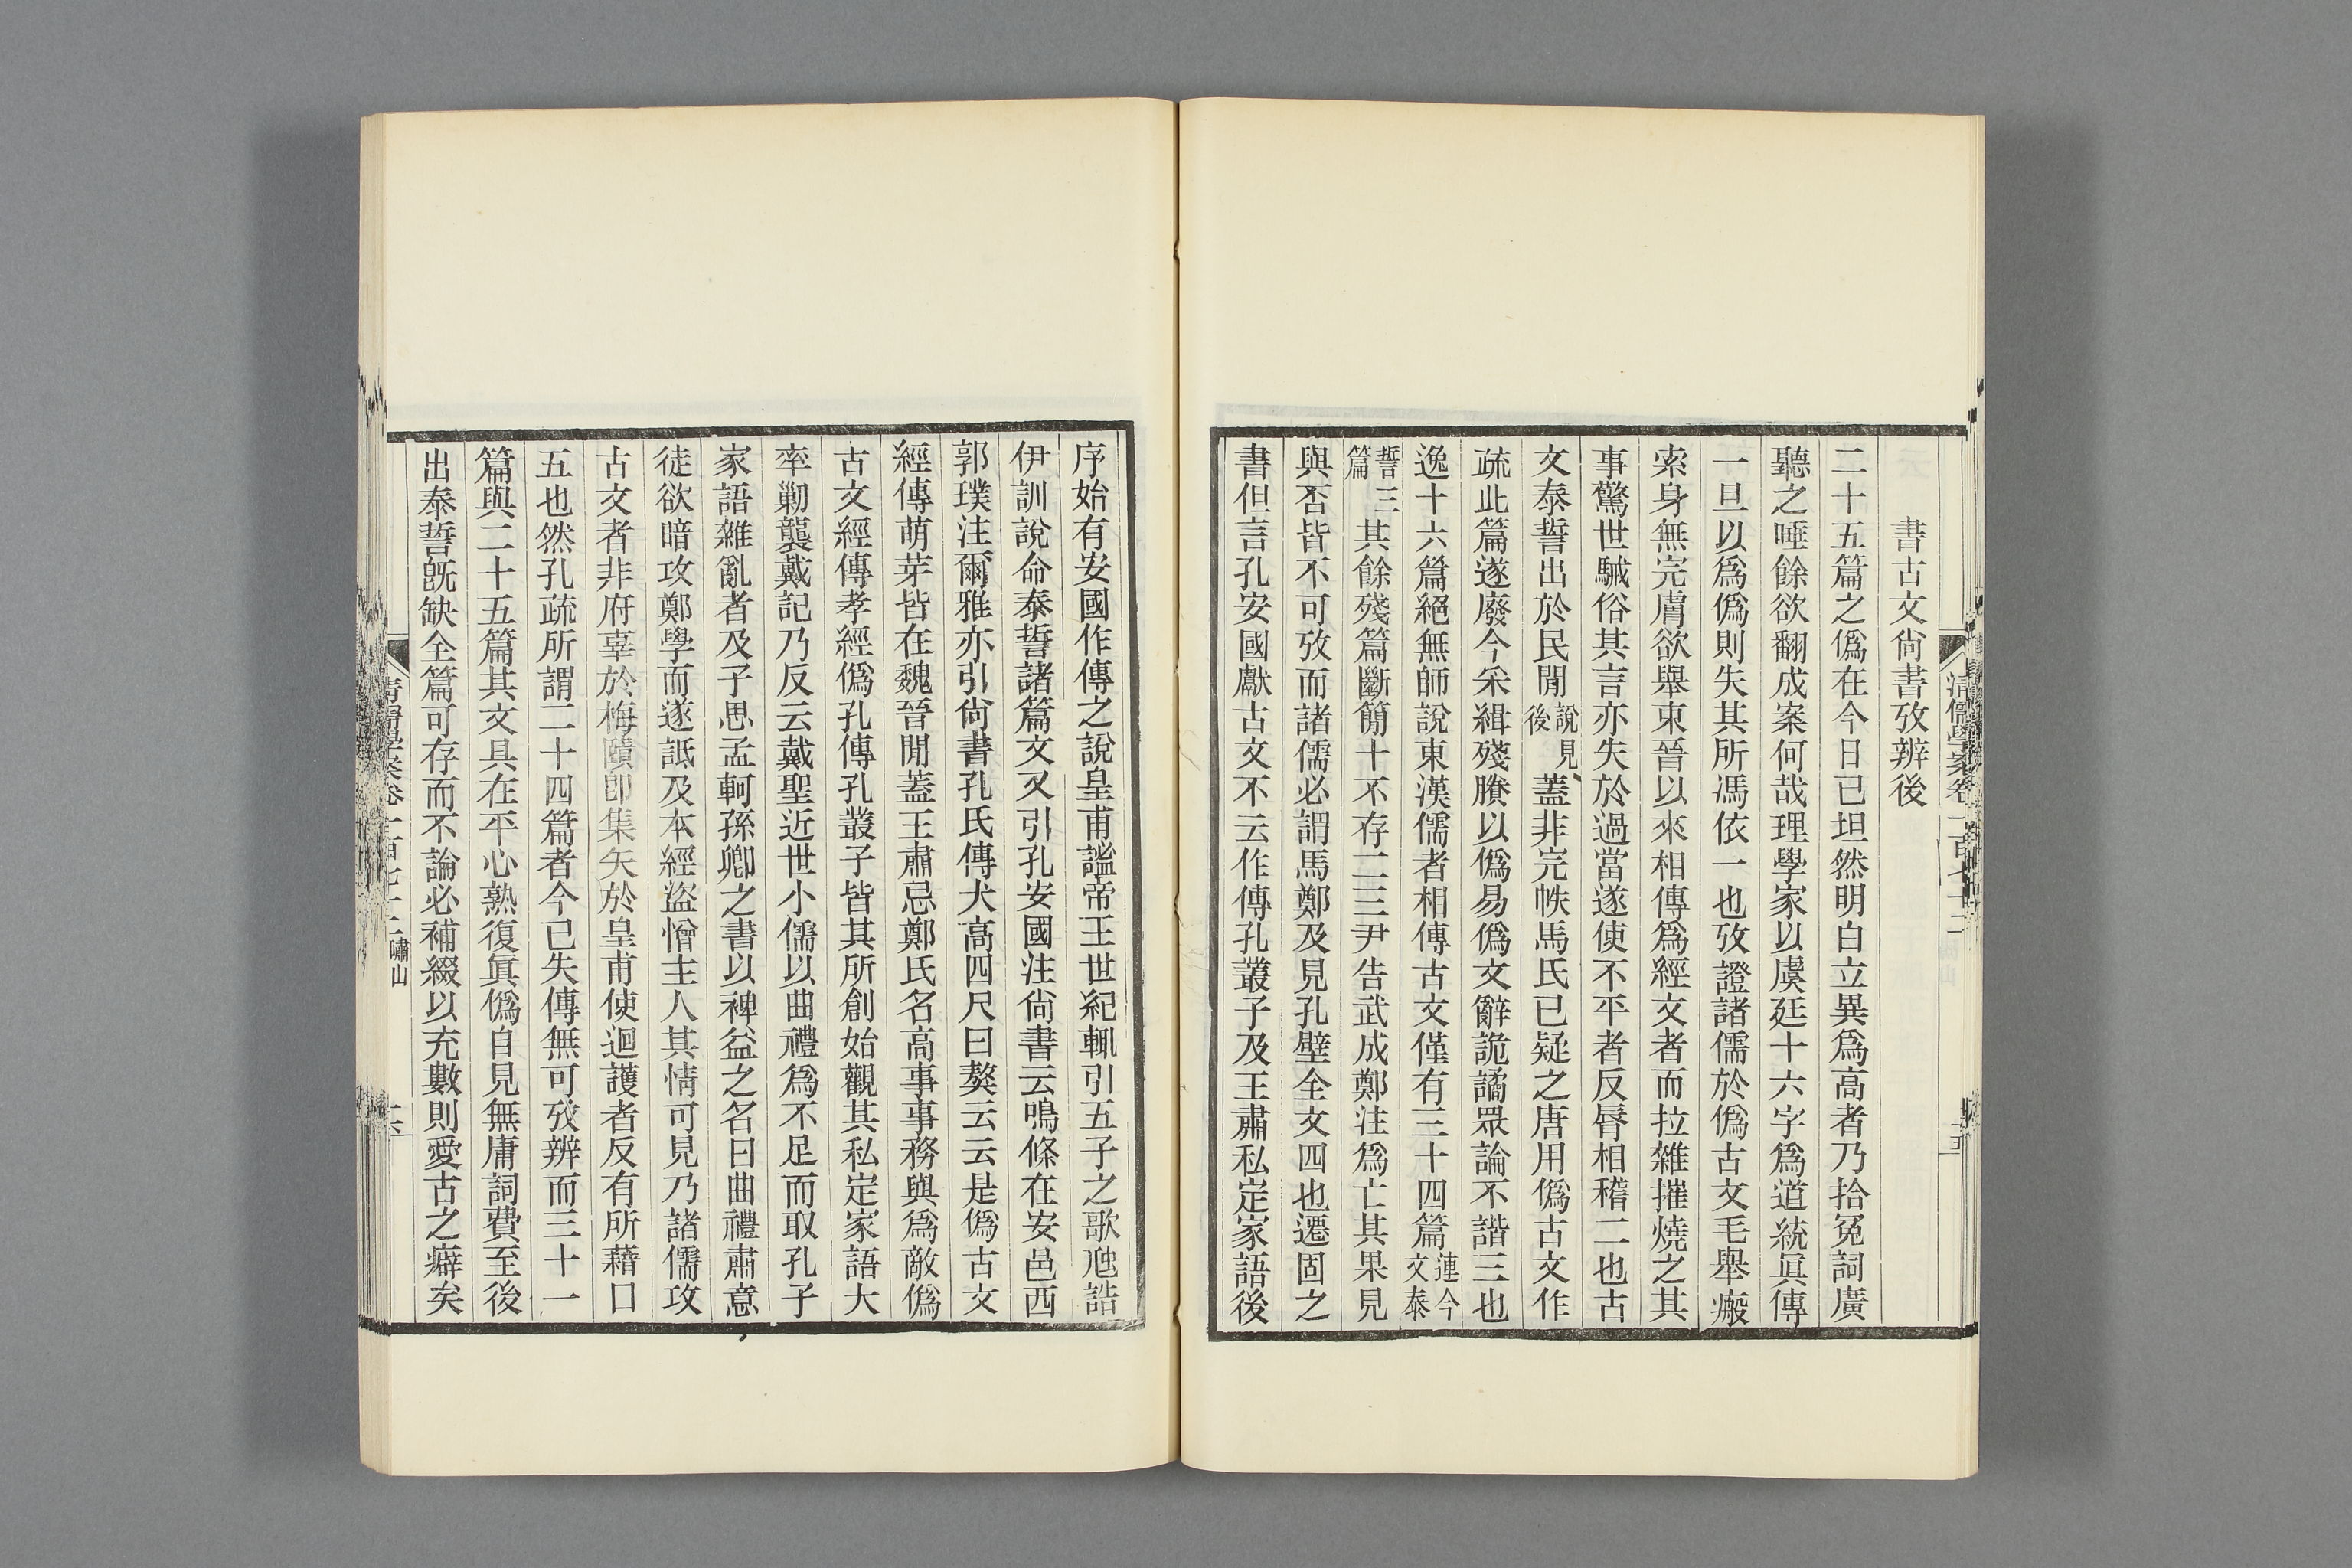 書古文尙書攷辨後
二十五篇之僞在今日已坦然明白立異爲高者乃拾冤詞廣
聽之唾餘欲翻成案何哉理學家以虞廷十六字爲道統眞傳
一旦以爲僞則失其所馮依一也攷證諸儒於僞古文毛舉瘢
索身無完膚欲舉東晉以來相傳爲經文者而拉雜摧燒之其
事驚世駴俗其言亦失於過當遂使不平者反脣相稽二也古
文泰誓出於民閒說見後蓋非完帙馬氏已疑之唐用僞古文作
疏此篇遂廢今采緝殘賸以僞易僞文辭詭譎眾論不諧三也
逸十六篇絕無師說東漢儒者相傳古文僅有三十四篇連今文泰
誓三篇其餘殘篇斷簡十不存二三尹告武成鄭注爲亡其果見
與否皆不可攷而諸儒必謂馬鄭及見孔壁全文四也遷固之
書但言孔安國獻古文不云作傳孔叢子及王肅私定家語後
清儒學案卷一百七十二
序始有安國作傳之說皇甫謐帝王世紀輒引五子之歌虺誥
伊訓說命泰誓諸篇文又引孔安國注尙書云鳴條在安邑西
郭璞注爾雅亦引尙書孔氏傳犬高四尺曰獒云云是僞古文
經傳萌芽皆在魏晉閒蓋王肅忌鄭氏名高事事務與爲敵僞
古文經傳孝經僞孔傳孔叢子皆其所創始觀其私定家語大
率勦襲戴記乃反云戴聖近世小儒以曲禮爲不足而取孔子
家語雜亂者及子思孟軻孫卿之書以裨益之名曰曲禮肅意
徒欲暗攻鄭學而遂詆及本經盜憎主人其情可見乃諸儒攻
古文者非府辜於梅賾卽集矢於皇甫使迴護者反有所藉口
五也然孔疏所謂二十四篇者今已失傳無可攷辨而三十一
篇與二十五篇其文具在平心熟復眞僞自見無庸詞費至後
出泰誓旣缺全篇可存而不論必補綴以充數則愛古之癖矣
嘯山